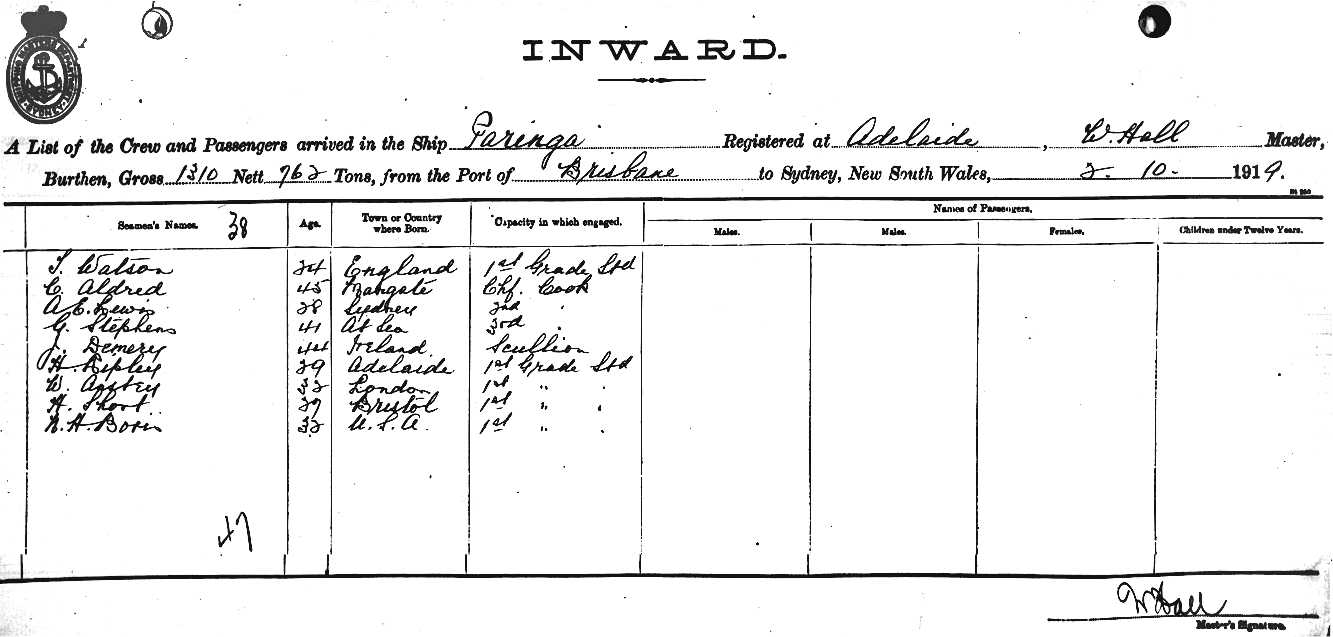 SHIPPING MASTERS DEPARTMENT SYDNEY
INWARD.
A List of the Crew and Passengers arrived in the Ship Paringa Registered at Adelaide, W. Hall Master,
Burthen, Gross 1310 Nett 762 Tons, from the Port of Brisbane to Sydney, New South Wales, 2. 10. 1919.
Seamen's Names. 38 Age. Town or Country where Born. Capacity in which engaged. Names of Passengers.
Males. Males. Females. Children under Twelve Years.
T. Watson 24 England 1st Grade Std
C. Aldred 45 Margate Chf. Cook
A. E. Lewis 28 Sydney 2nd "
G. Stephens 41 At Sea 3rd "
J. Demery 44 Ireland Scullion
H. Ripley 29 Adelaide 1st Grade Std
W. Anstey 32 London 1st " "
H. Short 29 Bristol 1st " "
32 U.S.A. 1st " "
47
W Hall
Master's Signature.